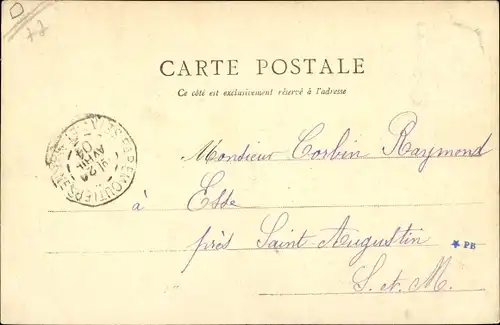 CARTE POSTALE
Ce côté est exclusivement réservé à l'adresse
AVRIL
04
Monsieur Corbin Raymond
à Esde
près Saint-Augustin
★ PB
S. et. M.